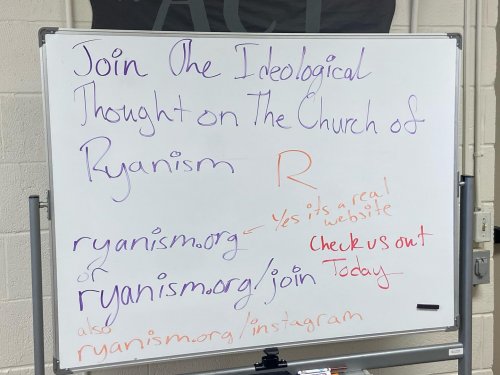 ACT
Join The Ideological
Thought on The Church of
Ryanism R
Yes its a real
website
ryanism.org
Check us out
Today
or
ryanism.org/join
also
ryanism.org/instagram